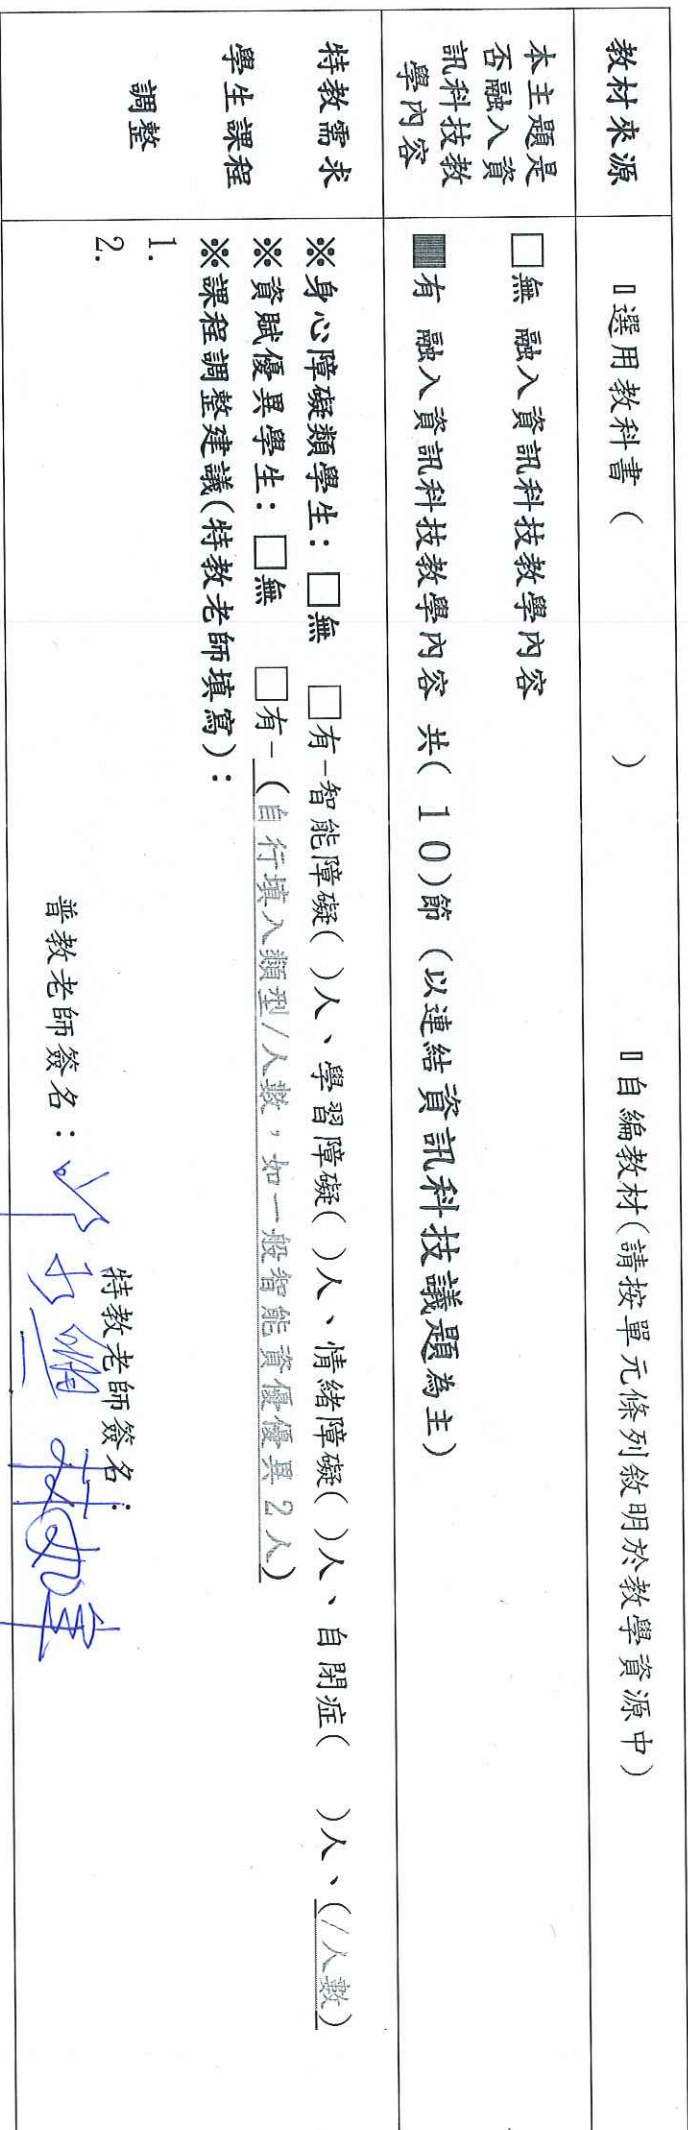 教材來源
▯選用教科書 (          )          ▯自編教材(請按單元條列敘明於教學資源中)
本主題是
否融入資
訊科技教
學內容
□無 融入資訊科技教學內容
■有 融入資訊科技教學內容 共( 10)節 (以連結資訊科技議題為主)
特教需求
學生課程
調整
※身心障礙類學生: □無  □有-智能障礙( )人、學習障礙( )人、情緒障礙( )人、自閉症(   )人、(/人數)
※資賦優異學生: □無  □有-(自行填入類型/人數,如一般智能資優優異2人)
※課程調整建議(特教老師填寫):
1.
2.
特教老師簽名:
普教老師簽名: